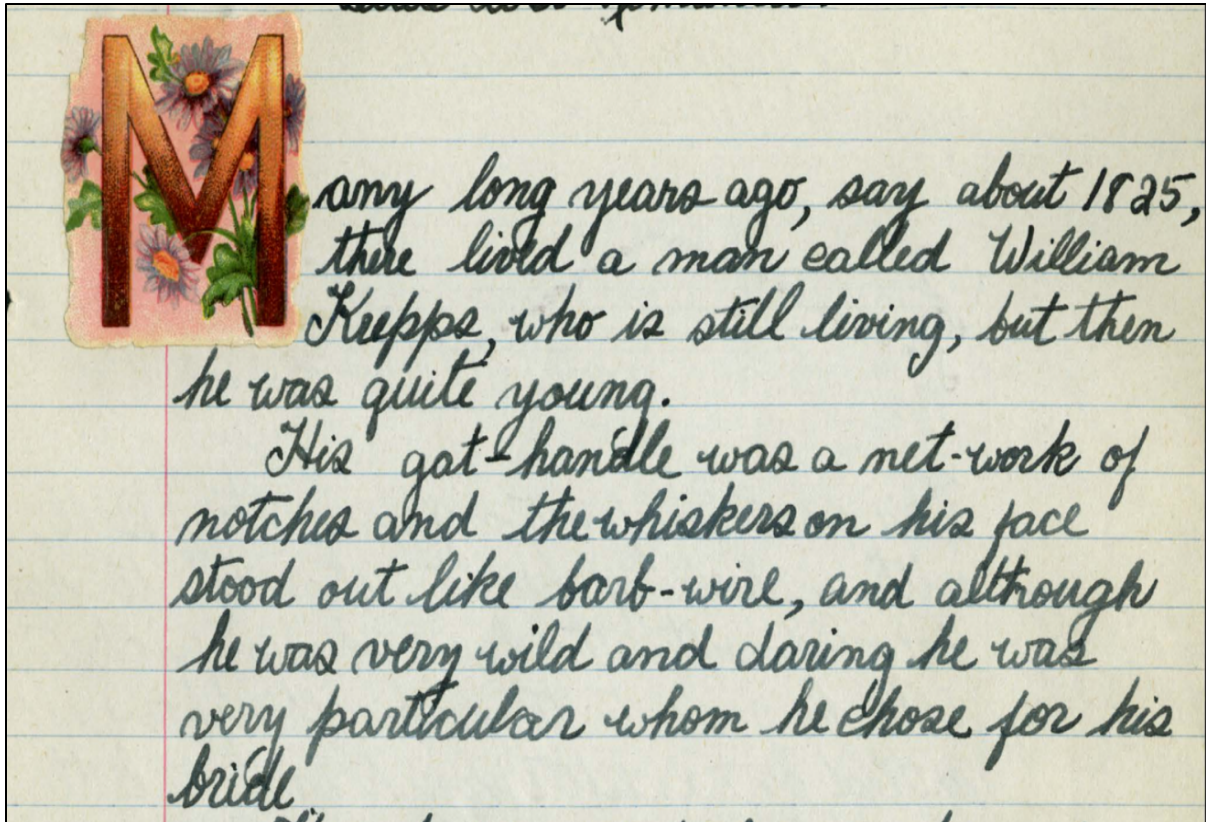 Many long years ago, say about 1825,
there lived a man called William
Keepps, who is still living, but then
he was quite young.
His gat-handle was a net-work of
notches and the whiskers on his face
stood out like barb-wire, and although
he was very wild and daring he was
very particular whom he chose for his
bride.